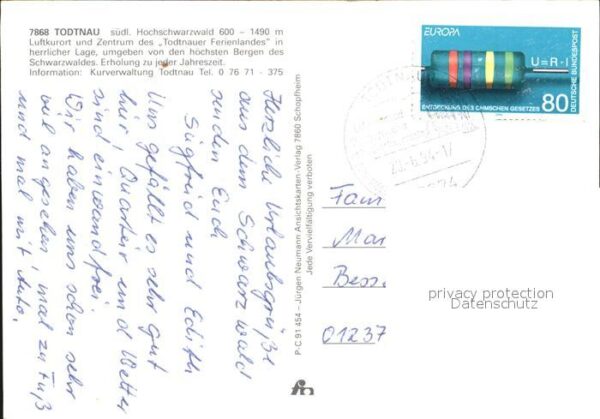 7868 TODTNAU südl. Hochschwarzwald 600 – 1490 m
Luftkurort und Zentrum des „Todtnauer Ferienlandes" in
herrlicher Lage, umgeben von den höchsten Bergen des
Schwarzwaldes. Erholung zu jeder Jahreszeit.
Information: Kurverwaltung Todtnau Tel. 0 76 71 - 375
Herzliche Urlaubsgrüße
aus dem Schwarzwald
senden Euch
Siegfried und Edith
Uns gefällt es sehr gut
hier, Quartier und Wetter
sind einwandfrei.
Wir haben uns schon sehr
viel angesehen, mal zu Fuß
und mal mit Auto.
P.C 91 454 – Jürgen Neumann Ansichtskarten-Verlag 7860 Schopfheim
Jede Vervielfältigung verboten
EUROPA
U=R·I
ENTDECKUNG DES OHMSCHEN GESETZES
80
DEUTSCHE BUNDESPOST
Fam
Mar
Bess.
01237
privacy protection
Datenschutz